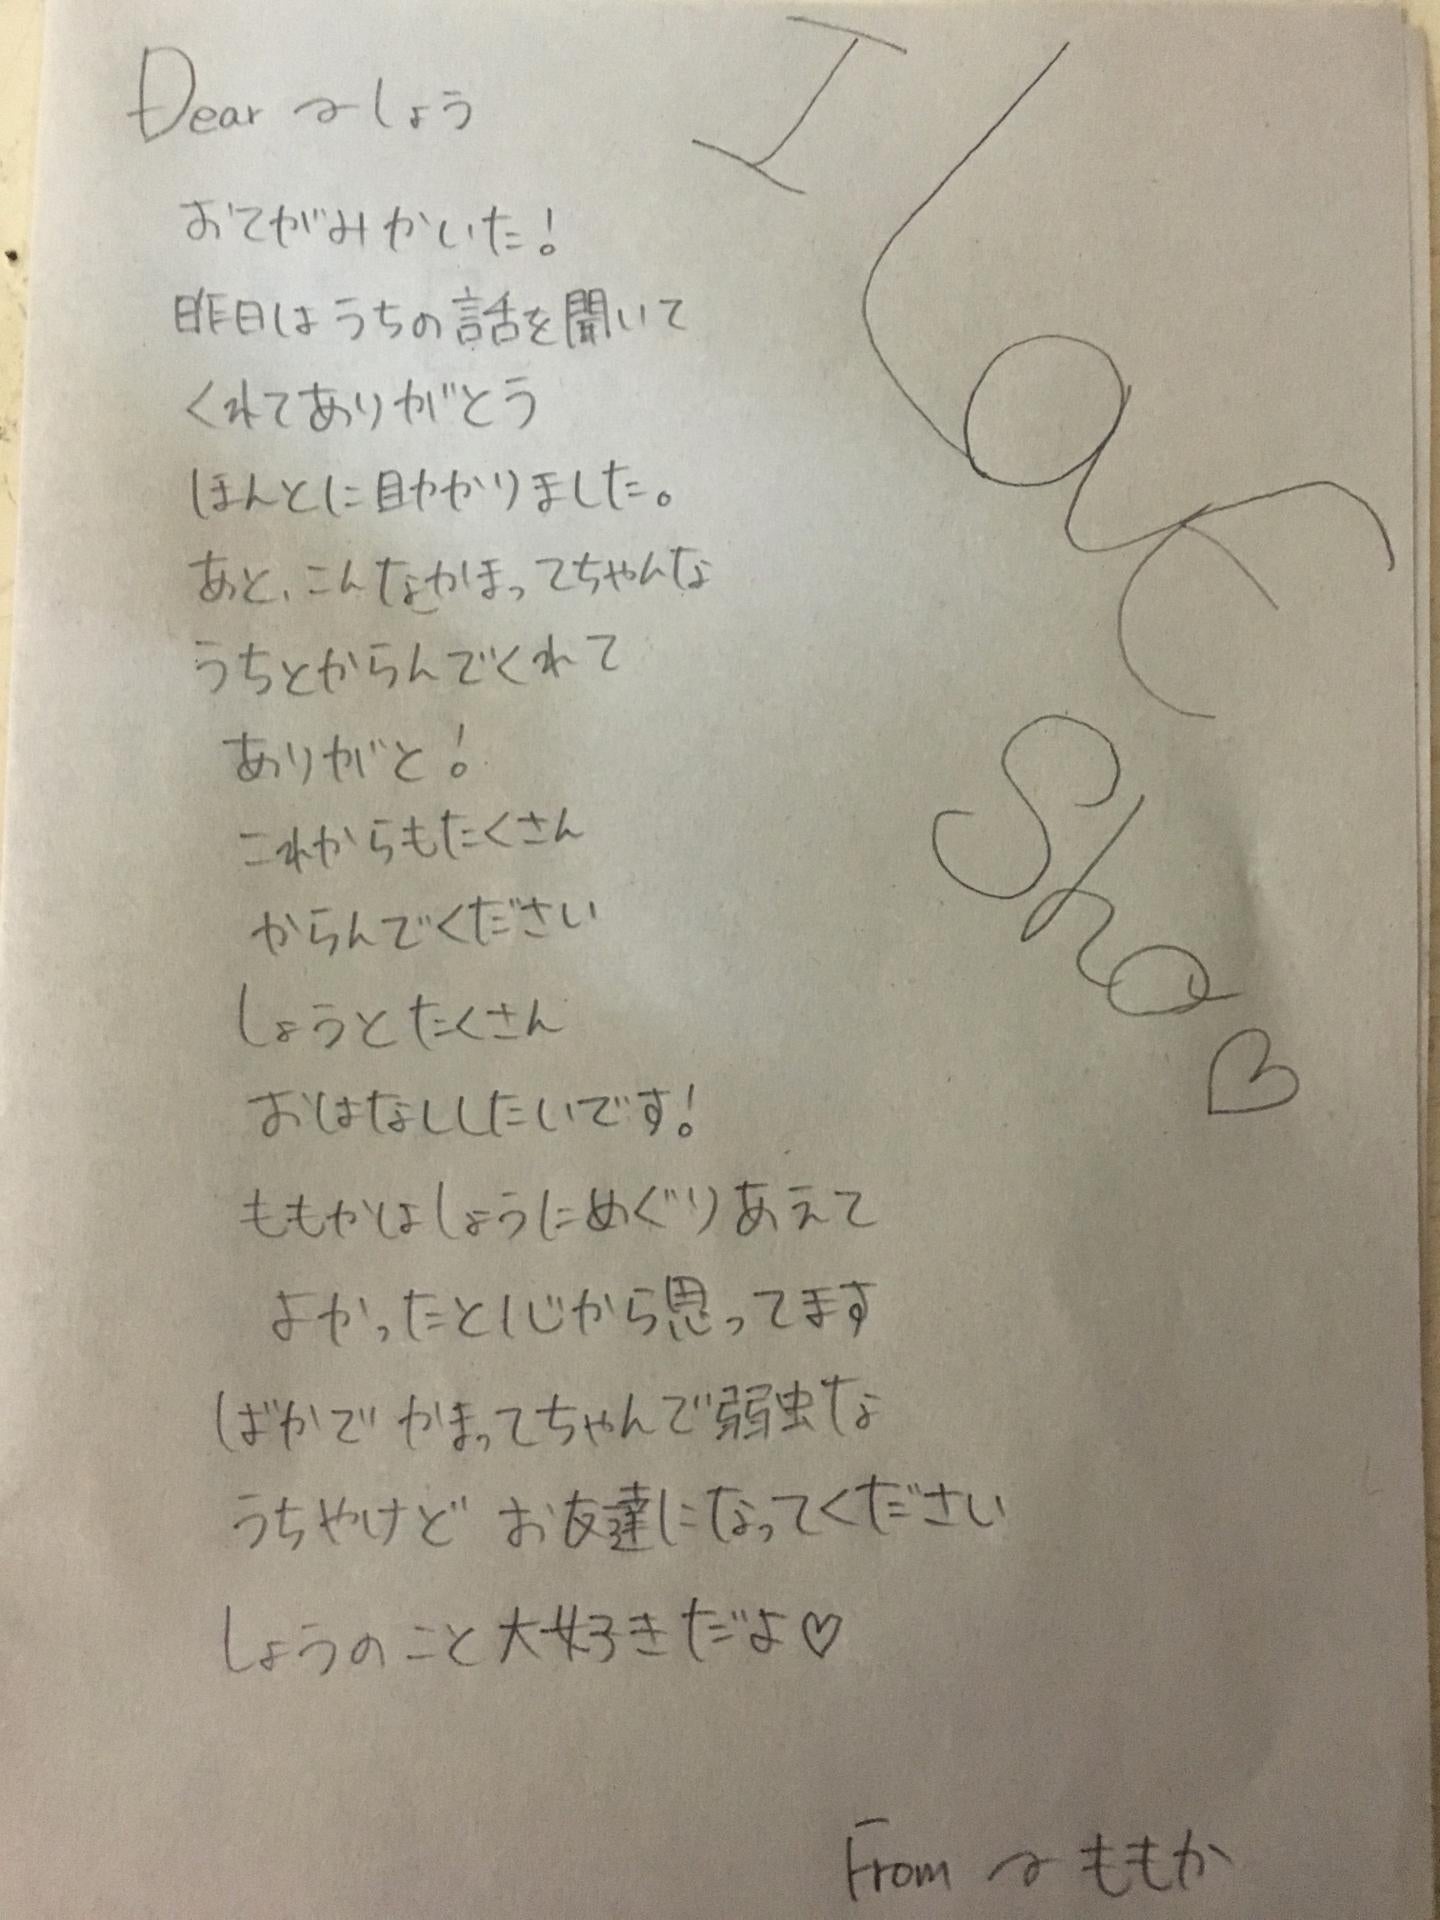 Dear ～しょう
おてがみかいた!
昨日はうちの話を聞いて
くれてありがとう
ほんとに助かりました。
あと、こんなかまってちゃんな
うちとからんでくれて
ありがと!
これからもたくさん
からんでください
しょうとたくさん
おはなししたいです!
ももかはしょうにめぐりあえて
よかったと心から思ってます
ばかで かまってちゃんで弱虫な
うちやけど お友達になってください
しょうのこと大好きだよ♡
From ～ももか
I
Love
Sho
♡